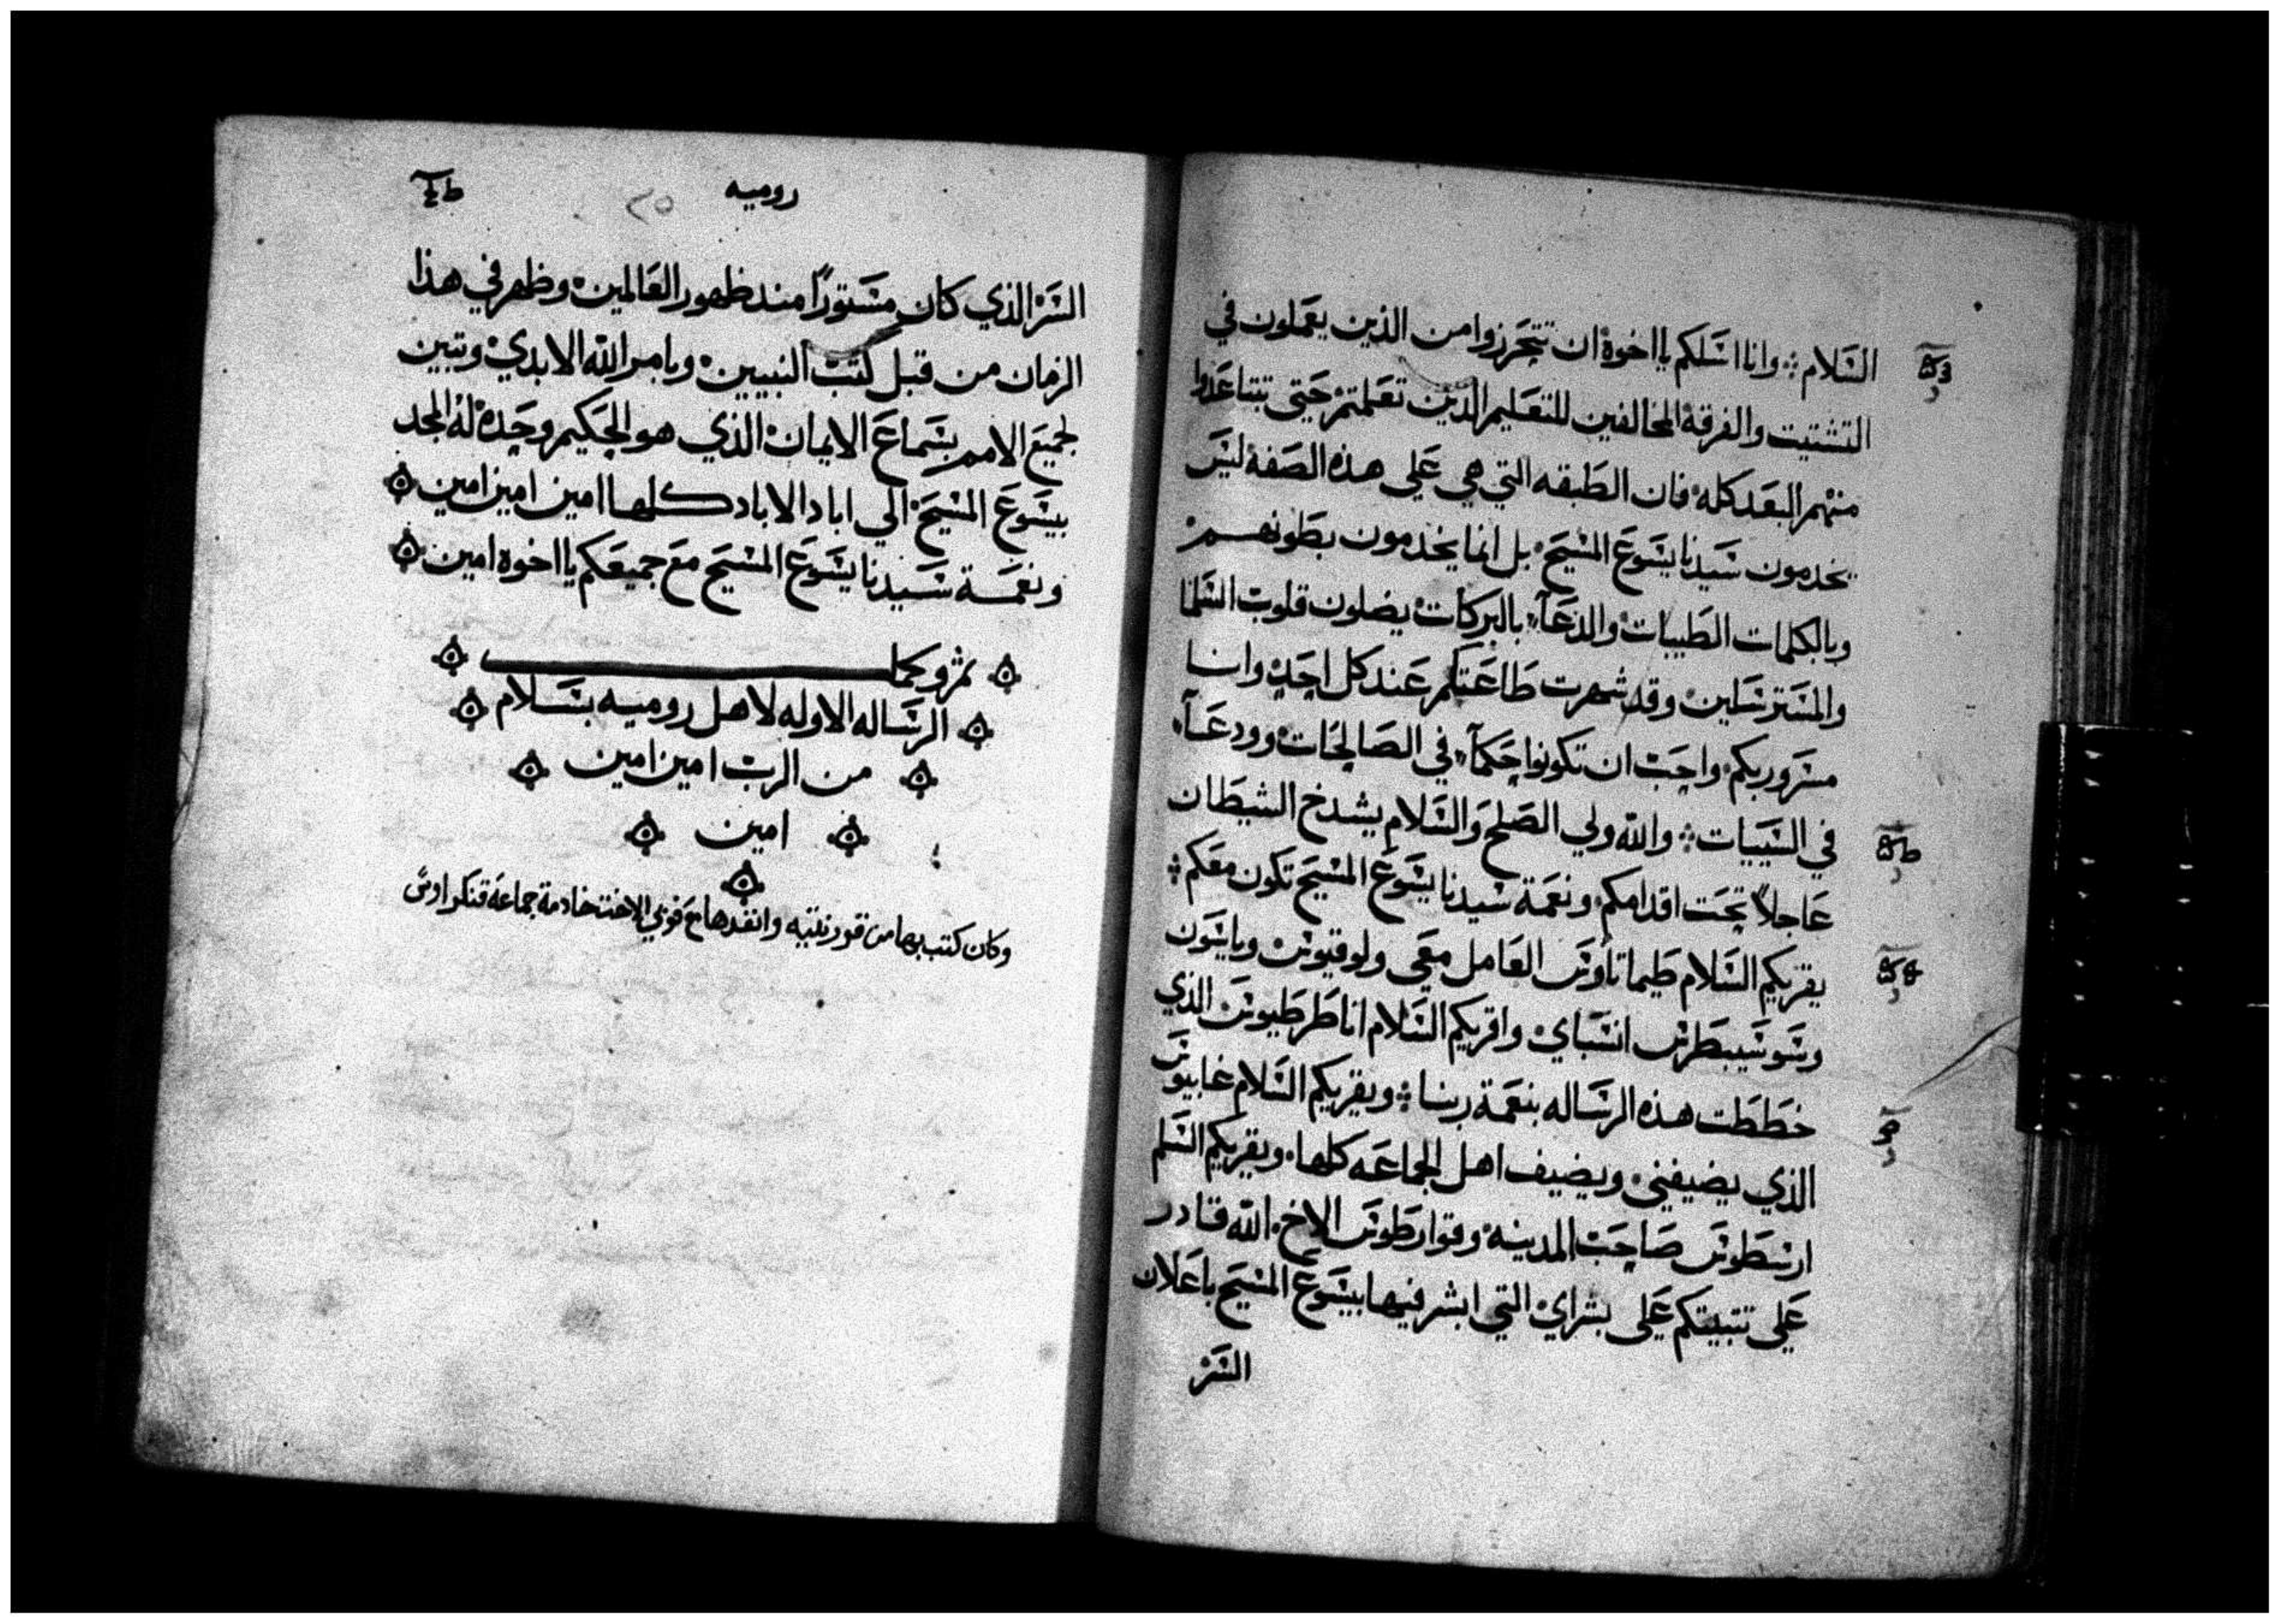 السلام وانا اسلكم يا اخوة ان تتحرزوا من الذين يعملون في
التشتيت والفرقة المخالفين للتعليم الذين تعلمتم حتى تبتاعدوا
منهم البعد كله فان الطبقه التي هي على هذه الصفة ليس
يخدمون سيدنا يشوع المسيح بل انما يخدمون بطونهم
وبالكلمات الطيبات والدعآء بالبركات يضلون قلوب السلما
والمسترسلين وقد شهرت طاعتكم عند كل احد وانا
مسرور بكم واحب ان تكونوا حكمآء في الصالحات وودعآء
في السييات والله ولي الصلح والسلام يشدخ الشيطان
عاجلاً تحت اقدامكم ونعمة سيدنا يشوع المسيح تكون معكم
يقريكم السلام طيماتاوس العامل معي ولوقيوس وياسون
وسوسيبطرس انسباي واقريكم السلام انا طرطيوس الذي
خططت هذه الرساله بنعمة ربنا ويقريكم السلام غابيوس
الذي يضيفني ويضيف اهل الجماعه كلها ويقريكم السلم
ارسطوس صاحب المدينة وقوارطوس الاخ الله قادر
على تثبيتكم على بشراي التي ابشر فيها بيشوع المسيح باعلان
السر
روميه
٢٥
السر الذي كان مستوراً مند ظهور العالمين وظهر في هذا
الزمان من قبل كتب النبيين وبامر الله الابدي وتبين
لجميع الامم بسماع الايمان الذي هو الحكيم وحده له المجد
بيشوع المسيح الي اباد الاباد كلها امين امين امين
ونعمة سيدنا يشوع المسيح مع جميعكم يا اخوه امين
الرساله الاوله لاهل روميه بسلام
من الرب امين امين
امين
وكان كتب بها من قورنتيه وانفدها مع فوبي الاخت خادمة جماعة قنكراوس